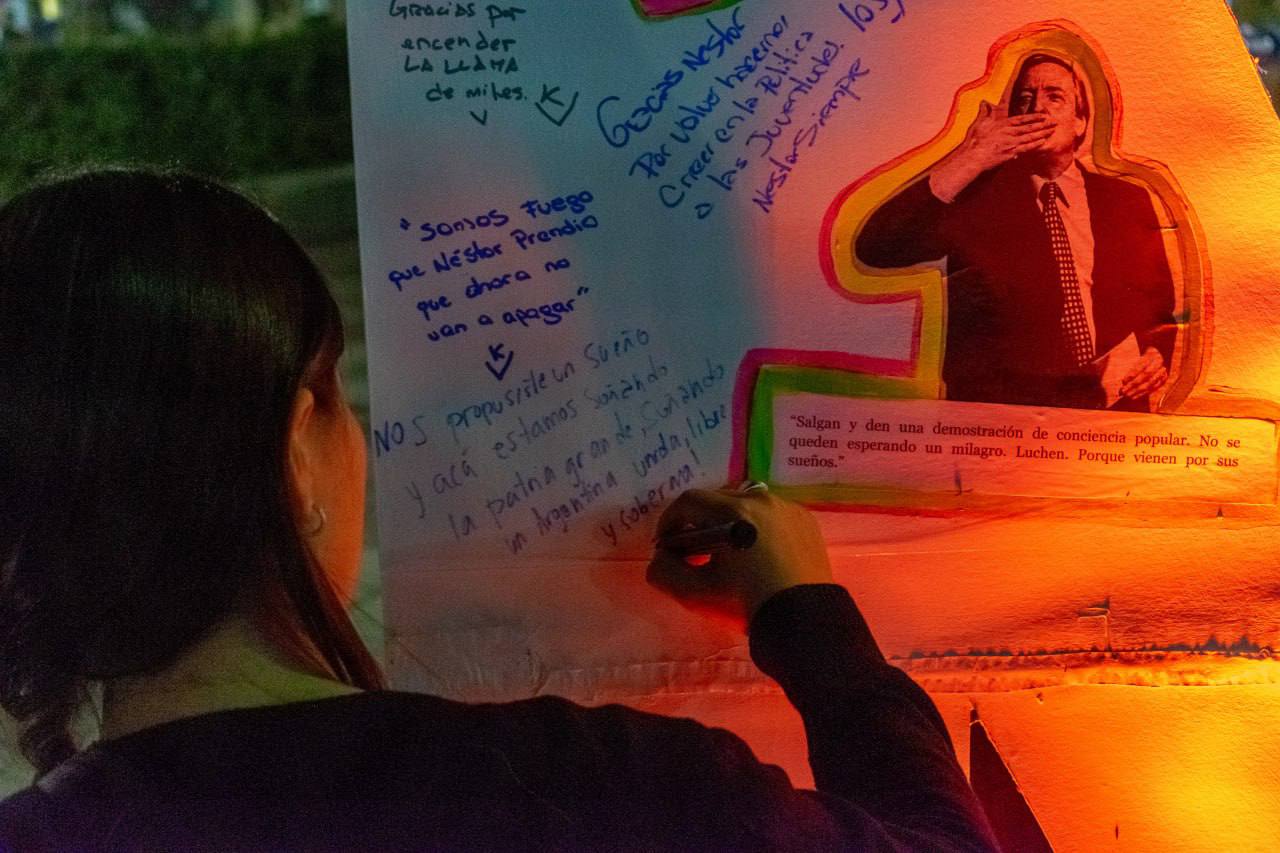 Gracias por
encender
LA LLAMA
de miles.
K
Gracias Nestor
Por volver hacernos
Creer en la Politica
a las Juventudes. los
Nestor Siempre
"Somos Fuego
que Néstor Prendio
que ahora no
van a apagar"
K
NOS propusiste un sueño
y acá estamos soñando
la patria grande, soñando
un Argentina unida, libre
y soberana!
"Salgan y den una demostración de conciencia popular. No se
queden esperando un milagro. Luchen. Porque vienen por sus
sueños."